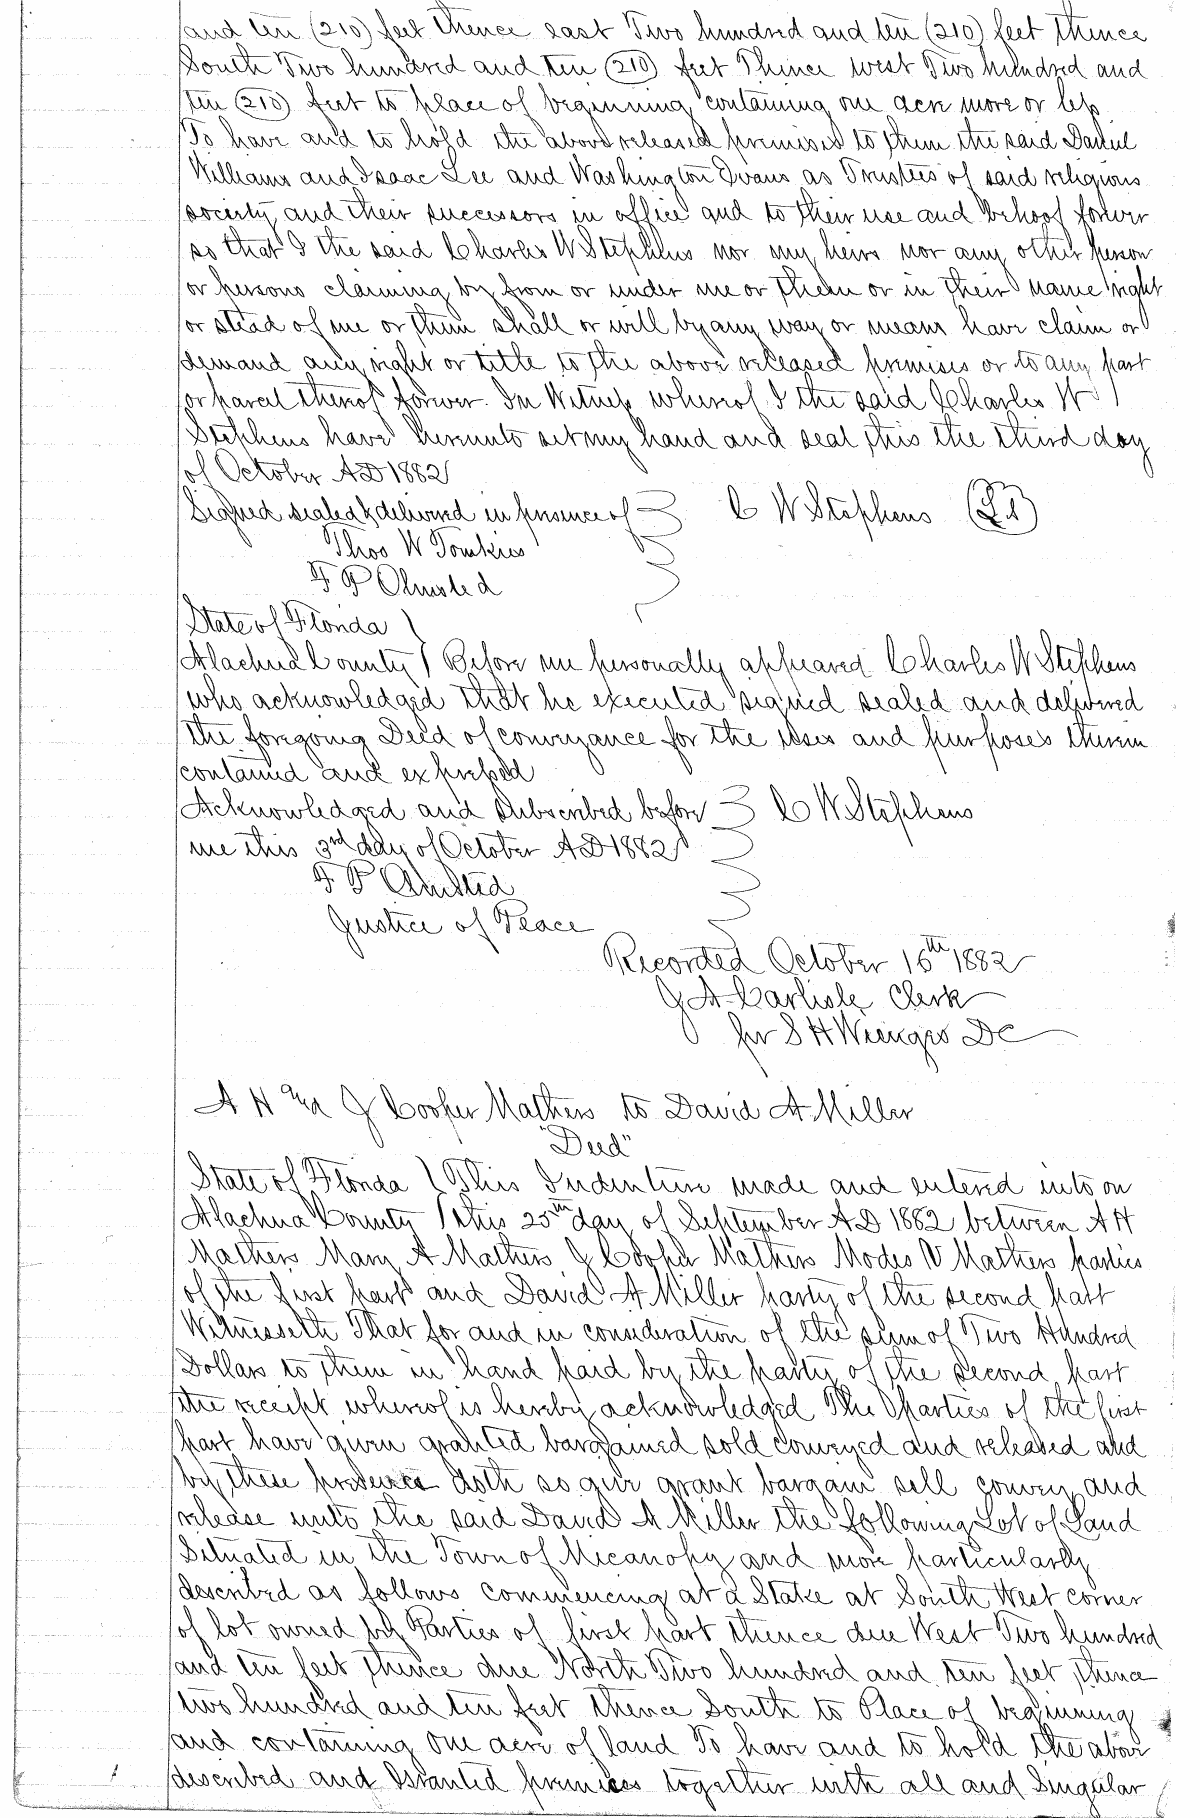 and ten (210) feet thence east Two hundred and ten (210) feet thence
South Two hundred and ten (210) feet Thence west Two hundred and
ten (210) feet to place of beginning containing one acre more or less
To have and to hold the above released premises to them the said Daniel
Williams and Isaac Lee and Washington Evans as Trustees of said religious
society and their successors in office and to their use and behoof forever
so that I the said Charles W Stephens nor my heirs nor any other person
or persons claiming by from or under me or them or in their name right
or stead of me or them shall or will by any way or means have claim or
demand any right or title to the above released premises or to any part
or parcel thereof forever. In Witness whereof I the said Charles W
Stephens have hereunto set my hand and seal this the third day
of October AD 1882
Signed sealed & delivered in presence of C W Stephens (LS)
Thos W Tomkies
F P Olmsted
State of Florida
Alachua County Before me personally appeared Charles W Stephens
who acknowledged that he executed signed sealed and delivered
the foregoing Deed of conveyance for the uses and purposes therein
contained and expressed
Acknowledged and subscribed before C W Stephens
me this 3rd day of October AD 1882
F P Olmsted
Justice of Peace
Recorded October 16th 1882
J A Carlisle Clerk
per S H Wienges DC
A H and J Cooper Mathers to David A Miller
"Deed"
State of Florida This Indenture made and entered into on
Alachua County this 25th day of September AD 1882 between A H
Mathers Mary A Mathers J Cooper Mathers Modes V Mathers parties
of the first part and David A Miller party of the second part
Witnesseth That for and in consideration of the sum of Two Hundred
Dollars to them in hand paid by the party of the second part
the receipt whereof is hereby acknowledged The Parties of the first
part have given granted bargained sold conveyed and released and
by these presence doth so give grant bargain sell convey and
release unto the said David A Miller the following Lot of Land
Situated in the Town of Micanopy and more particularly
described as follows commencing at a Stake at South West corner
of lot owned by Parties of first part thence due West Two hundred
and ten feet thence due North Two hundred and ten feet thence
two hundred and ten feet thence South to Place of beginning
and containing one acre of land To have and to hold the above
described and Granted premises together with all and Singular